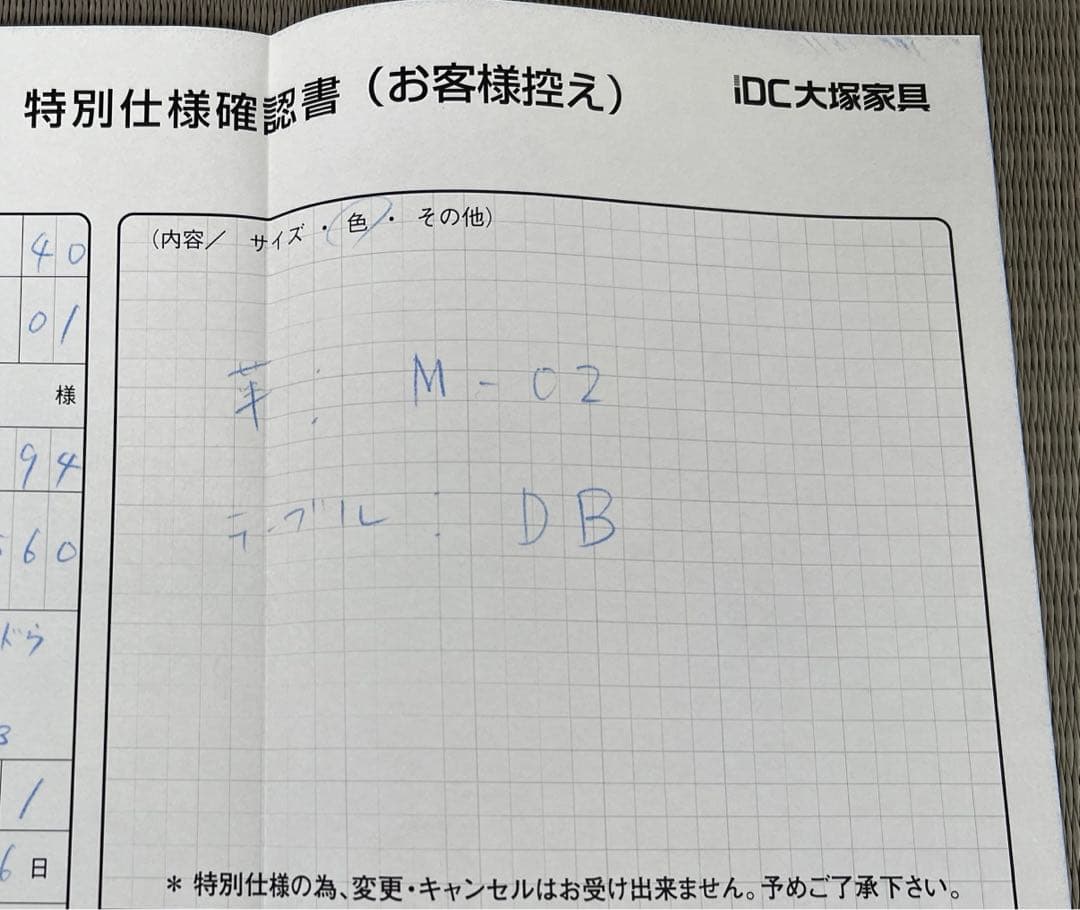 特別仕様確認書（お客様控え）
iDC大塚家具
（内容／ サイズ ・ 色 ・ その他）
40
01
様
94
60
ドら
3
1
6日
革： M-02
テーブル： DB
＊特別仕様の為、変更・キャンセルはお受け出来ません。予めご了承下さい。